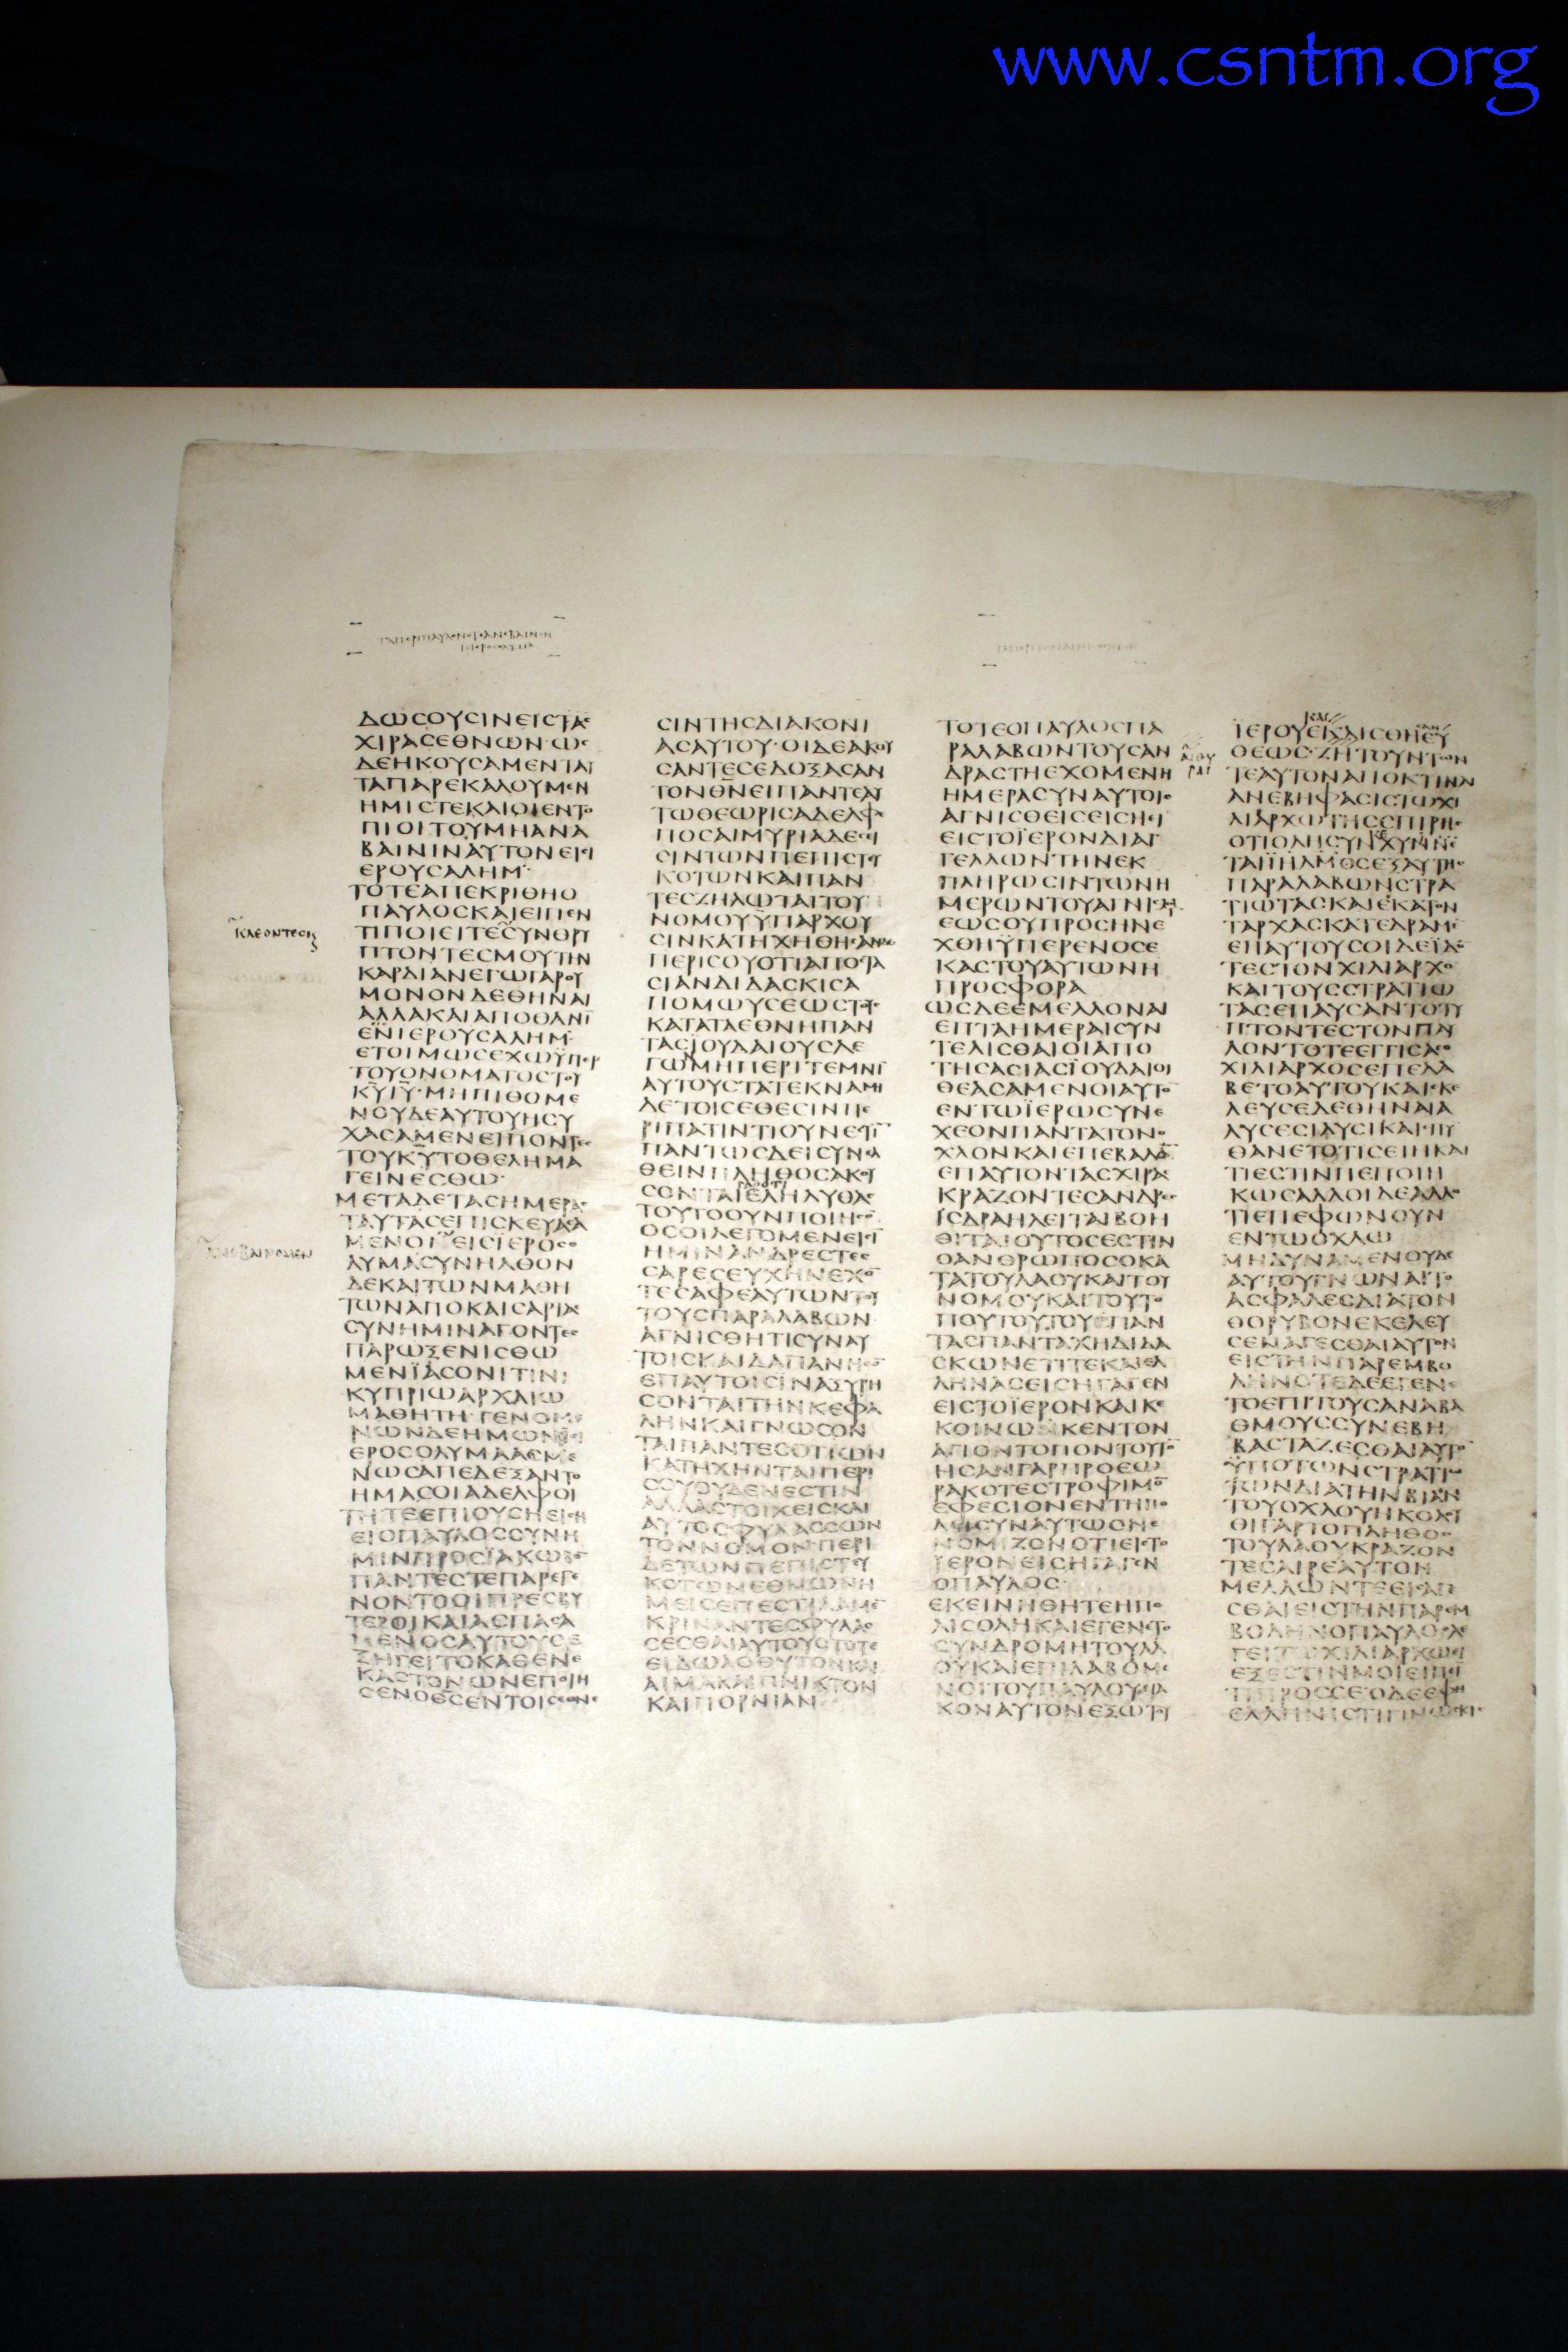 www.csntm.org
ΔΩCΟΥCΙΝΕΙCΤΑC
ΧΙΡΑCΕΘΝΩΝ·ΩC
ΔΕΗΚΟΥCΑΜΕΝΤΑΥ
ΤΑΠΑΡΕΚΑΛΟΥΜΕΝ
ΗΜΙCΤΕΚΑΙΟΙΕΝΤΟ
ΠΙΟΙΤΟΥΜΗΑΝΑ
ΒΑΙΝΙΝΑΥΤΟΝΕΙCΙ
ΕΡΟΥCΑΛΗΜ·
ΤΟΤΕΑΠΕΚΡΙΘΗΟ
ΠΑΥΛΟCΚΑΙΕΙΠΕΝ
ΤΙΠΟΙΕΙΤΕCΥΝΘΡΥ
ΠΤΟΝΤΕCΜΟΥΤΗΝ
ΚΑΡΔΙΑΝΕΓΩΓΑΡΟΥ
ΜΟΝΟΝΔΕΘΗΝΑΙ
ΑΛΛΑΚΑΙΑΠΟΘΑΝΙ
ΕΝΙΕΡΟΥCΑΛΗΜ
ΕΤΟΙΜΩCΕΧΩΫΠΕΡ
ΤΟΥΟΝΟΜΑΤΟCΤΟΥ
ΚΥΙΥ·ΜΗΠΙΘΟΜΕ
ΝΟΥΔΕΑΥΤΟΥΗCΥ
ΧΑCΑΜΕΝΕΙΠΟΝΤΕC
ΤΟΥΚΥΤΟΘΕΛΗΜΑ
ΓΕΙΝΕCΘΩ·
ΜΕΤΑΔΕΤΑCΗΜΕΡΑC
ΤΑΥΤΑCΕΠΙCΚΕΥΑCΑ
ΜΕΝΟΙΕΙCΪΕΡΟCΟ
ΛΥΜΑCΥΝΗΛΘΟΝ
ΔΕΚΑΙΤΩΝΜΑΘΗ
ΤΩΝΑΠΟΚΑΙCΑΡΙΑC
CΥΝΗΜΙΝΑΓΟΝΤΕC
ΠΑΡΩΞΕΝΙCΘΩ
ΜΕΝΪΑCΟΝΙΤΙΝΙ
ΚΥΠΡΙΩΑΡΧΑΙΩ
ΜΑΘΗΤΗ·ΓΕΝΟΜΕ
ΝΩΝΔΕΗΜΩΝΕΙC
ΕΡΟCΟΛΥΜΑΑCΜΕ
ΝΩCΑΠΕΔΕΞΑΝΤΟ
ΗΜΑCΟΙΑΔΕΛΦΟΙ
ΤΗΤΕΕΠΙΟΥCΗΕΙCΗ
ΕΙΟΠΑΥΛΟCCΥΝΗ
ΜΙΝΠΡΟCΪΑΚΩΒΟ
ΠΑΝΤΕCΤΕΠΑΡΕΓΕ
ΝΟΝΤΟΟΙΠΡΕCΒΥ
ΤΕΡΟΙΚΑΙΑCΠΑCΑ
ΜΕΝΟCΑΥΤΟΥCΕ
ΞΗΓΕΙΤΟΚΑΘΕΝΕ
ΚΑCΤΟΝΩΝΕΠΟΙΗ
CΕΝΟΘCΕΝΤΟΙCΕΘΝΕ
CΙΝΤΗCΔΙΑΚΟΝΙ
ΑCΑΥΤΟΥ·ΟΙΔΕΑΚΟΥ
CΑΝΤΕCΕΔΟΞΑCΑΝ
ΤΟΝΘΝΕΙΠΑΝΤΕΑΥ
ΤΩΘΕΩΡΙCΑΔΕΛΦΕ
ΠΟCΑΙΜΥΡΙΑΔΕCΕΙ
CΙΝΤΩΝΠΕΠΙCΤΕΥ
ΚΟΤΩΝΚΑΙΠΑΝ
ΤΕCΖΗΛΩΤΑΙΤΟΥ
ΝΟΜΟΥΫΠΑΡΧΟΥ
CΙΝΚΑΤΗΧΗΘΗCΑΝΔΕ
ΠΕΡΙCΟΥΟΤΙΑΠΟCΤΑ
CΙΑΝΔΙΔΑCΚΙCΑ
ΠΟΜΩΥCΕΩCΤΟΥC
ΚΑΤΑΤΑΕΘΝΗΠΑΝ
ΤΑCΙΟΥΔΑΙΟΥCΛΕ
ΓΩΜΗΠΕΡΙΤΕΜΝΙ
ΑΥΤΟΥCΤΑΤΕΚΝΑΜΗ
ΔΕΤΟΙCΕΘΕCΙΝΠΕ
ΡΙΠΑΤΙΝΤΙΟΥΝΕCΤΙ
ΠΑΝΤΩCΔΕΙCΥΝΕΛ
ΘΕΙΝΠΛΗΘΟCΑΚΟΥ
CΟΝΤΑΙΕΛΗΛΥΘΑC
ΤΟΥΤΟΟΥΝΠΟΙΗCΟ
ΟCΟΙΛΕΓΟΜΕΝΕΙCΙ
ΗΜΙΝΑΝΔΡΕCΤΕC
CΑΡΕCΕΥΧΗΝΕΧΟ
ΤΕCΑΦΕΑΥΤΩΝΤΟΥ
ΤΟΥCΠΑΡΑΛΑΒΩΝ
ΑΓΝΙCΘΗΤΙCΥΝΑΥ
ΤΟΙCΚΑΙΔΑΠΑΝΗCΟ
ΕΠΑΥΤΟΙCΪΝΑΞΥΡΗ
CΟΝΤΑΙΤΗΝΚΕΦΑ
ΛΗΝΚΑΙΓΝΩCΟΝ
ΤΑΙΠΑΝΤΕCΟΤΙΩΝ
ΚΑΤΗΧΗΝΤΑΙΠΕΡΙ
CΟΥΟΥΔΕΝΕCΤΙΝ
ΑΛΛΑCΤΟΙΧΕΙCΚΑΙ
ΑΥΤΟCΦΥΛΑCCΩΝ
ΤΟΝΝΟΜΟΝ·ΠΕΡΙ
ΔΕΤΩΝΠΕΠΙCΤΕΥ
ΚΟΤΩΝΕΘΝΩΝΗ
ΜΕΙCΕΠΕCΤΙΛΑΜΕ
ΚΡΙΝΑΝΤΕCΦΥΛΑC
CΕCΘΑΙΑΥΤΟΥCΤΟΤΕ
ΕΙΔΩΛΟΘΥΤΟΝΚΑΙ
ΑΙΜΑΚΑΙΠΝΙΚΤΟΝ
ΚΑΙΠΟΡΝΙΑΝ
ΤΟΤΕΟΠΑΥΛΟCΠΑ
ΡΑΛΑΒΩΝΤΟΥCΑΝ
ΔΡΑCΤΗΕΧΟΜΕΝΗ
ΗΜΕΡΑCΥΝΑΥΤΟΙC
ΑΓΝΙCΘΕΙCΕΙCΗΕΙ
ΕΙCΤΟΪΕΡΟΝΔΙΑΓ
ΓΕΛΛΩΝΤΗΝΕΚ
ΠΛΗΡΩCΙΝΤΩΝΗ
ΜΕΡΩΝΤΟΥΑΓΝΙCΜΟΥ
ΕΩCΟΥΠΡΟCΗΝΕ
ΧΘΗΫΠΕΡΕΝΟCΕ
ΚΑCΤΟΥΑΥΤΩΝΗ
ΠΡΟCΦΟΡΑ
ΩCΔΕΕΜΕΛΛΟΝΑΙ
ΕΠΤΑΗΜΕΡΑΙCΥΝ
ΤΕΛΙCΘΑΙΟΙΑΠΟ
ΤΗCΑCΙΑCΪΟΥΔΑΙΟΙ
ΘΕΑCΑΜΕΝΟΙΑΥΤΟ
ΕΝΤΩΪΕΡΩCΥΝΕ
ΧΕΟΝΠΑΝΤΑΤΟΝΟ
ΧΛΟΝΚΑΙΕΠΕΒΑΛΟ
ΕΠΑΥΤΟΝΤΑCΧΙΡΑC
ΚΡΑΖΟΝΤΕCΑΝΔΡΕC
ΙCΔΡΑΗΛΕΙΤΑΙΒΟΗ
ΘΙΤΑΙΟΥΤΟCΕCΤΙΝ
ΟΑΝΘΡΩΠΟCΟΚΑ
ΤΑΤΟΥΛΑΟΥΚΑΙΤΟΥ
ΝΟΜΟΥΚΑΙΤΟΥΤΟ
ΠΟΥΤΟΥΤΟΥΠΑΝ
ΤΑCΠΑΝΤΑΧΗΔΙΔΑ
CΚΩΝΕΤΙΤΕΚΑΙΕΛ
ΛΗΝΑCΕΙCΗΓΑΓΕΝ
ΕΙCΤΟΪΕΡΟΝΚΑΙΚΕ
ΚΟΙΝΩΝΚΕΝΤΟΝ
ΑΓΙΟΝΤΟΠΟΝΤΟΥΤΟ
ΗCΑΝΓΑΡΠΡΟΕΩ
ΡΑΚΟΤΕCΤΡΟΦΙΜΟ
ΕΦΕCΙΟΝΕΝΤΗΠΟ
ΛΕΙCΥΝΑΥΤΩΟΝΕ
ΝΟΜΙΖΟΝΟΤΙΕΙCΤΟ
ΪΕΡΟΝΕΙCΗΓΑΓΕΝ
ΟΠΑΥΛΟC·
ΕΚΕΙΝΗΘΗΤΕΗΠΟ
ΛΙCΟΛΗΚΑΙΕΓΕΝΕΤΟ
CΥΝΔΡΟΜΗΤΟΥΛΑ
ΟΥΚΑΙΕΠΙΛΑΒΟΜΕ
ΝΟΙΤΟΥΠΑΥΛΟΥΕΙΛ
ΚΟΝΑΥΤΟΝΕΞΩΤΟΥ
ΪΕΡΟΥΕΚΛΙCΘΗCΑΝΕΥ
ΘΕΩC·ΖΗΤΟΥΝΤΩΝ
ΤΕΑΥΤΟΝΑΠΟΚΤΙΝΑΙ
ΑΝΕΒΗΦΑCΙCΤΩΧΙ
ΛΙΑΡΧΩΤΗCCΠΙΡΗC
ΟΤΙΟΛΗCΥΝΧΥΝΝΕ
ΤΑΙΪΗΛΜΟCΕΞΑΥΤΗC
ΠΑΡΑΛΑΒΩΝCΤΡΑ
ΤΙΩΤΑCΚΑΙΕΚΑΤΟΝ
ΤΑΡΧΑCΚΑΤΕΔΡΑΜΕ
ΕΠΑΥΤΟΥCΟΙΔΕΪΔΟ
ΤΕCΤΟΝΧΙΛΙΑΡΧΟ
ΚΑΙΤΟΥCCΤΡΑΤΙΩ
ΤΑCΕΠΑΥCΑΝΤΟΤΥ
ΠΤΟΝΤΕCΤΟΝΠΑΥ
ΛΟΝΤΟΤΕΕΓΓΙCΑC
ΧΙΛΙΑΡΧΟCΕΠΕΛΑ
ΒΕΤΟΑΥΤΟΥΚΑΙΕΚΕ
ΛΕΥCΕΔΕΘΗΝΑΙΑ
ΛΥCΕCΙΔΥCΙΚΑΙΕΠΥ
ΘΑΝΕΤΟΤΙCΕΙΗΚΑΙ
ΤΙΕCΤΙΝΠΕΠΟΙΗ
ΚΩCΑΛΛΟΙΔΕΑΛΛΟ
ΤΙΕΠΕΦΩΝΟΥΝ
ΕΝΤΩΟΧΛΩ
ΜΗΔΥΝΑΜΕΝΟΥΔΕ
ΑΥΤΟΥΓΝΩΝΑΙΤΟ
ΑCΦΑΛΕCΔΙΑΤΟΝ
ΘΟΡΥΒΟΝΕΚΕΛΕΥ
CΕΝΑΓΕCΘΑΙΑΥΤΟΝ
ΕΙCΤΗΝΠΑΡΕΜΒΟ
ΛΗΝΟΤΕΔΕΕΓΕΝΕ
ΤΟΕΠΙΤΟΥCΑΝΑΒΑ
ΘΜΟΥCCΥΝΕΒΗ
ΒΑCΤΑΖΕCΘΑΙΑΥΤΟ
ΫΠΟΤΩΝCΤΡΑΤΙΩ
ΤΩΝΔΙΑΤΗΝΒΙΑΝ
ΤΟΥΟΧΛΟΥΗΚΟΛΟΥ
ΘΙΓΑΡΤΟΠΛΗΘΟC
ΤΟΥΛΑΟΥΚΡΑΖΟΝ
ΤΕCΑΙΡΕΑΥΤΟΝ
ΜΕΛΛΩΝΤΕΕΙCΑΓΕ
CΘΑΙΕΙCΤΗΝΠΑΡΕΜ
ΒΟΛΗΝΟΠΑΥΛΟCΛΕ
ΓΕΙΤΩΧΙΛΙΑΡΧΩΕΙ
ΕΞΕCΤΙΝΜΟΙΕΙΠΕΙ
ΤΙΠΡΟCCΕ·ΟΔΕΕΦΗ
ΕΛΛΗΝΙCΤΙΓΙΝΩCΚΙC